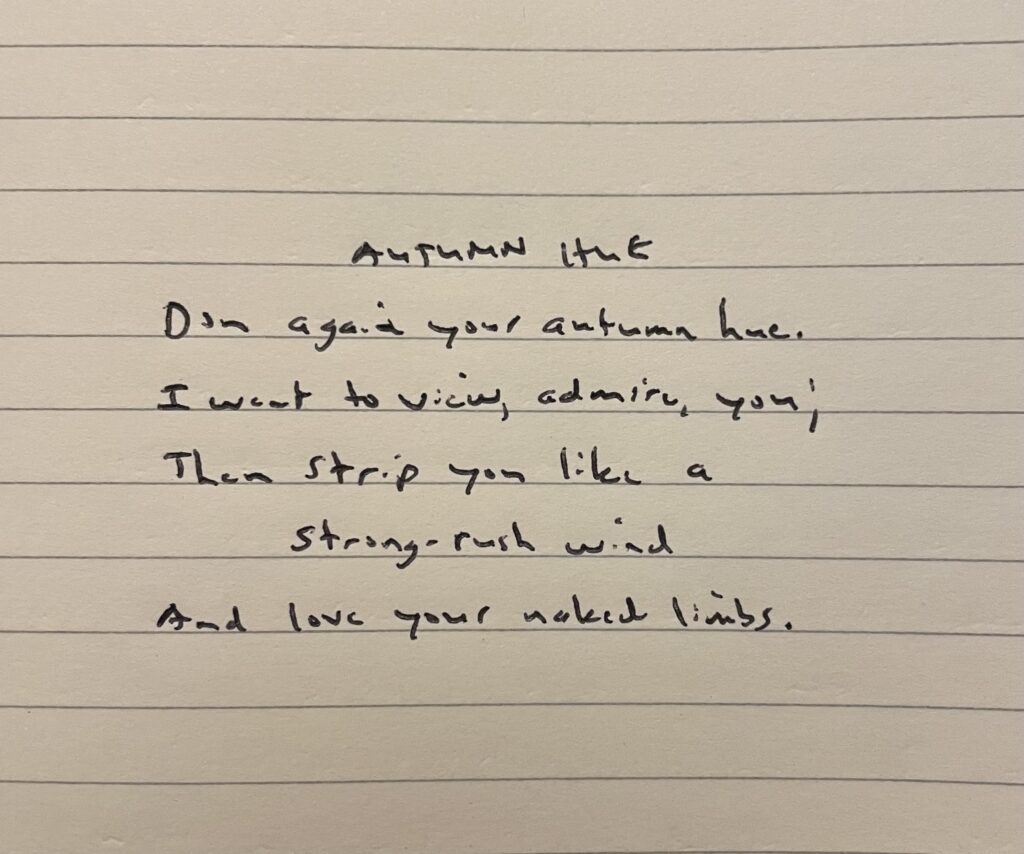 AUTUMN HUE
Don again your autumn hue.
I want to view, admire, you;
Then strip you like a
strong-rush wind
And love your naked limbs.